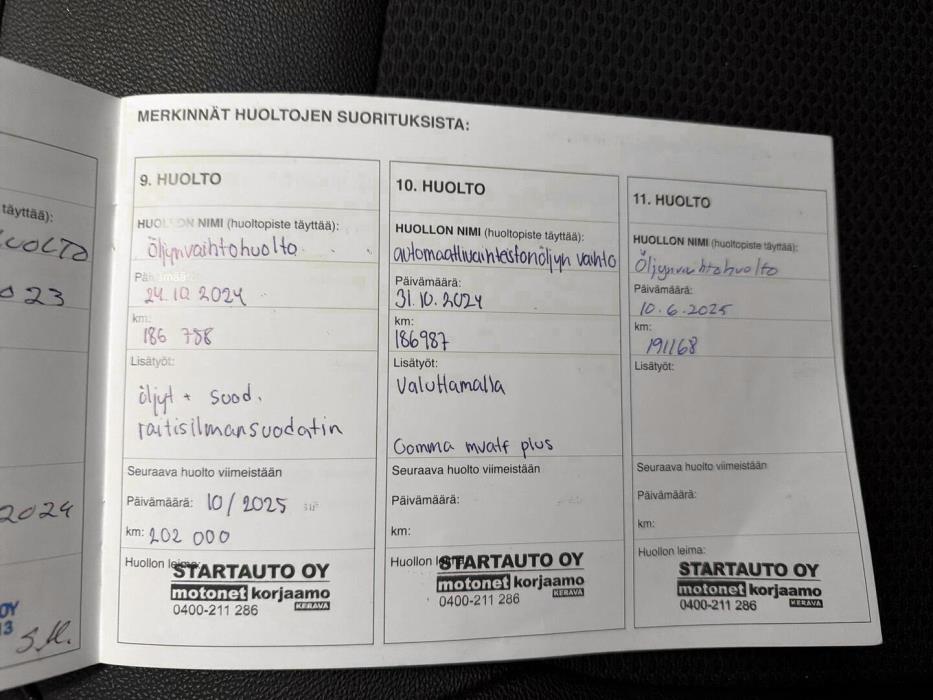 täyttää):
UOLTO
023
2024
OY
13
S.H.
MERKINNÄT HUOLTOJEN SUORITUKSISTA:
9. HUOLTO
HUOLLON NIMI (huoltopiste täyttää):
öljynvaihtohuolto
Päivämäärä:
24.10.2024
km:
186 758
Lisätyöt:
öljyt + suod.
raitisilmansuodatin
Seuraava huolto viimeistään
Päivämäärä: 10/2025
km: 202 000
Huollon leima:
STARTAUTO OY
motonet korjaamo
0400-211 286 KERAVA
10. HUOLTO
HUOLLON NIMI (huoltopiste täyttää):
automaattivaihteistonöljyn vaihto
Päivämäärä:
31.10.2024
km:
186987
Lisätyöt:
Valuttamalla
Comma mvatf plus
Seuraava huolto viimeistään
Päivämäärä:
km:
Huollon leima:
STARTAUTO OY
motonet korjaamo
0400-211 286 KERAVA
11. HUOLTO
HUOLLON NIMI (huoltopiste täyttää):
Öljynvaihtohuolto
Päivämäärä:
10.6.2025
km:
191168
Lisätyöt:
Seuraava huolto viimeistään
Päivämäärä:
km:
Huollon leima:
STARTAUTO OY
motonet korjaamo
0400-211 286 KERAVA